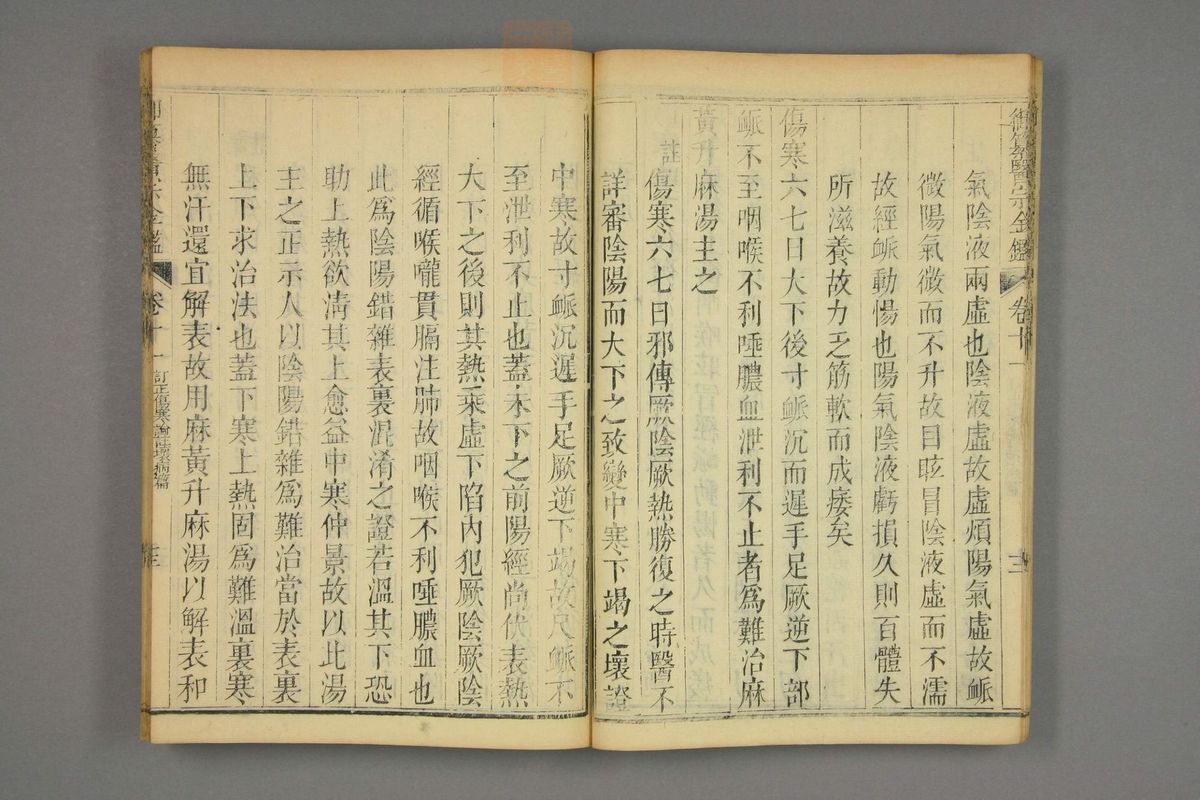 御纂醫宗金鑑 卷十一 
氣陰液兩虛也陰液虛故虛煩陽氣虛故脈
微陽氣微而不升故目眩冒陰液虛而不濡
故經脈動惕也陽氣陰液虧損久則百體失
所滋養故力乏筋軟而成痿矣
傷寒六七日大下後寸脈沉而遲手足厥逆下部
脈不至咽喉不利唾膿血泄利不止者爲難治麻
黃升麻湯主之
註傷寒六七日邪傳厥陰厥熱勝復之時醫不
詳審陰陽而大下之致變中寒下竭之壞證
中寒故寸脈沉遲手足厥逆下竭故尺脈不
至泄利不止也蓋未下之前陽經尚伏表熱
大下之後則其熱乘虛下陷內犯厥陰厥陰
經循喉嚨貫膈注肺故咽喉不利唾膿血也
此爲陰陽錯雜表裏混淆之證若溫其下恐
助上熱欲清其上愈益中寒仲景故以此湯
主之正示人以陰陽錯雜爲難治當於表裏
上下求治法也蓋下寒上熱固爲難溫裏寒
無汗還宜解表故用麻黃升麻湯以解表和
卷十一 訂正傷寒論壞病篇